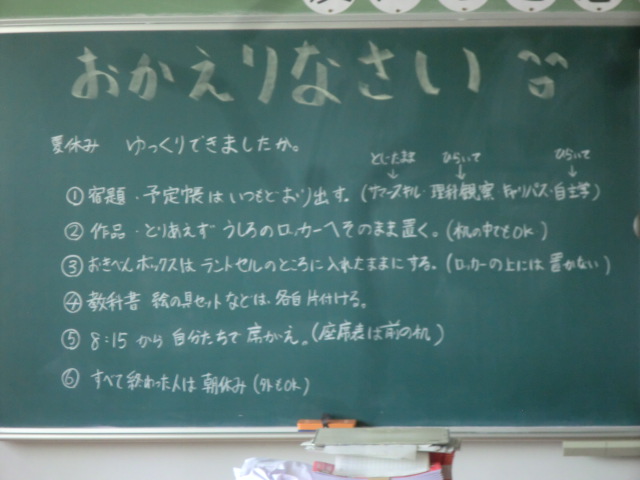 おかえりなさい
夏休み ゆっくりできましたか。
とじたまま ひらいて ひらいて
↓ ↓ ↓
①宿題・予定帳はいつもどおり出す。(サマースキル・理科観察 キャリパス・自主学)
②作品・とりあえず うしろのロッカーへそのまま置く。(机の中でもOK)
③おきべんボックスは ランドセルのところに入れたままにする。(ロッカーの上には置かない)
④教科書 絵の具セットなどは、各自片付ける。
⑤8:15から自分たちで席がえ。(座席表は前の机)
⑥すべて終わった人は朝休み(外もOK)